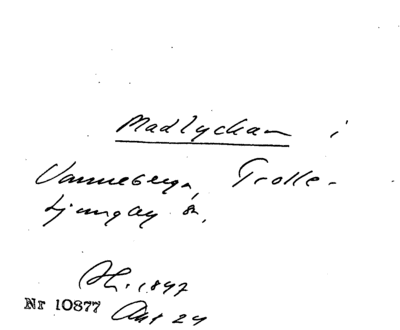 Madlyckan i
Vanneberga, Trolle-
Ljungby sn.
Sk. 1847
Nr 10877 Akt 24